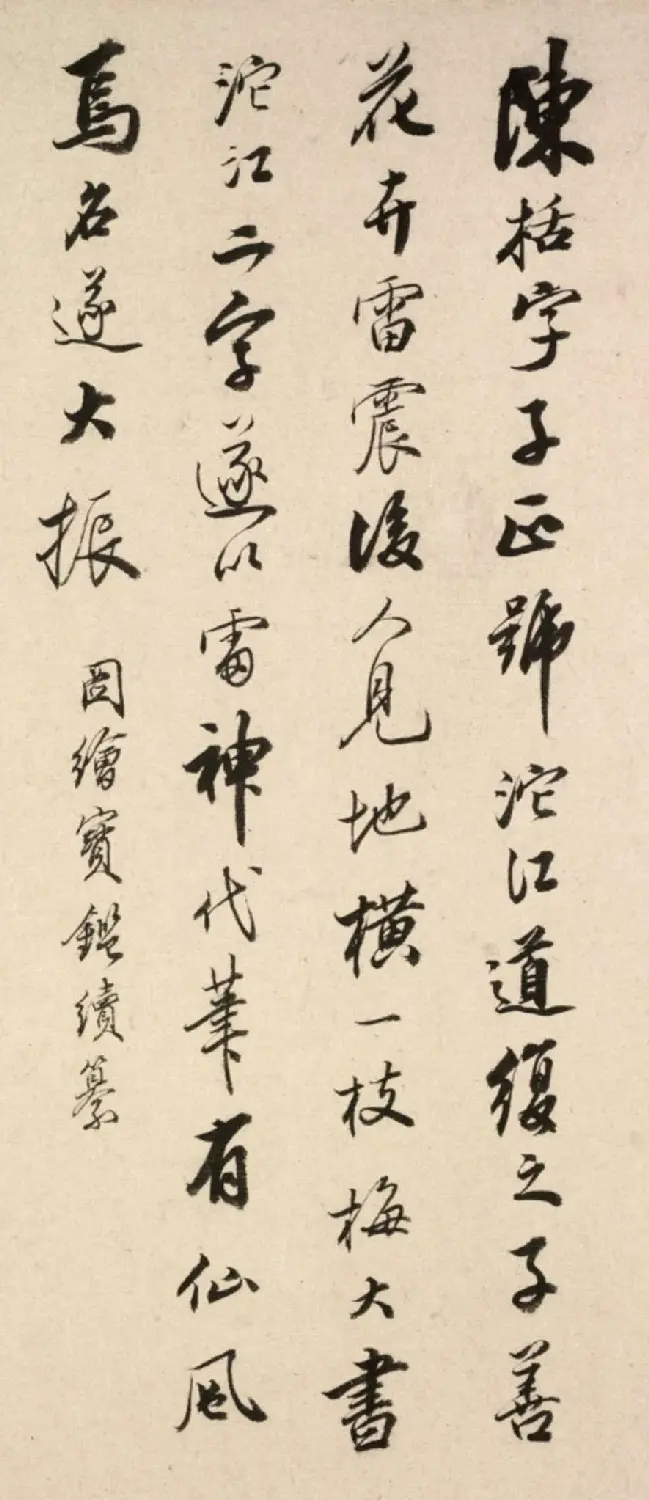 陳栝字子正號沱江道復之子善
花卉雷震後人見地橫一枝梅大書
沱江二字遂以雷神代筆有仙風
焉名遂大振
圖繪寶鑑續纂